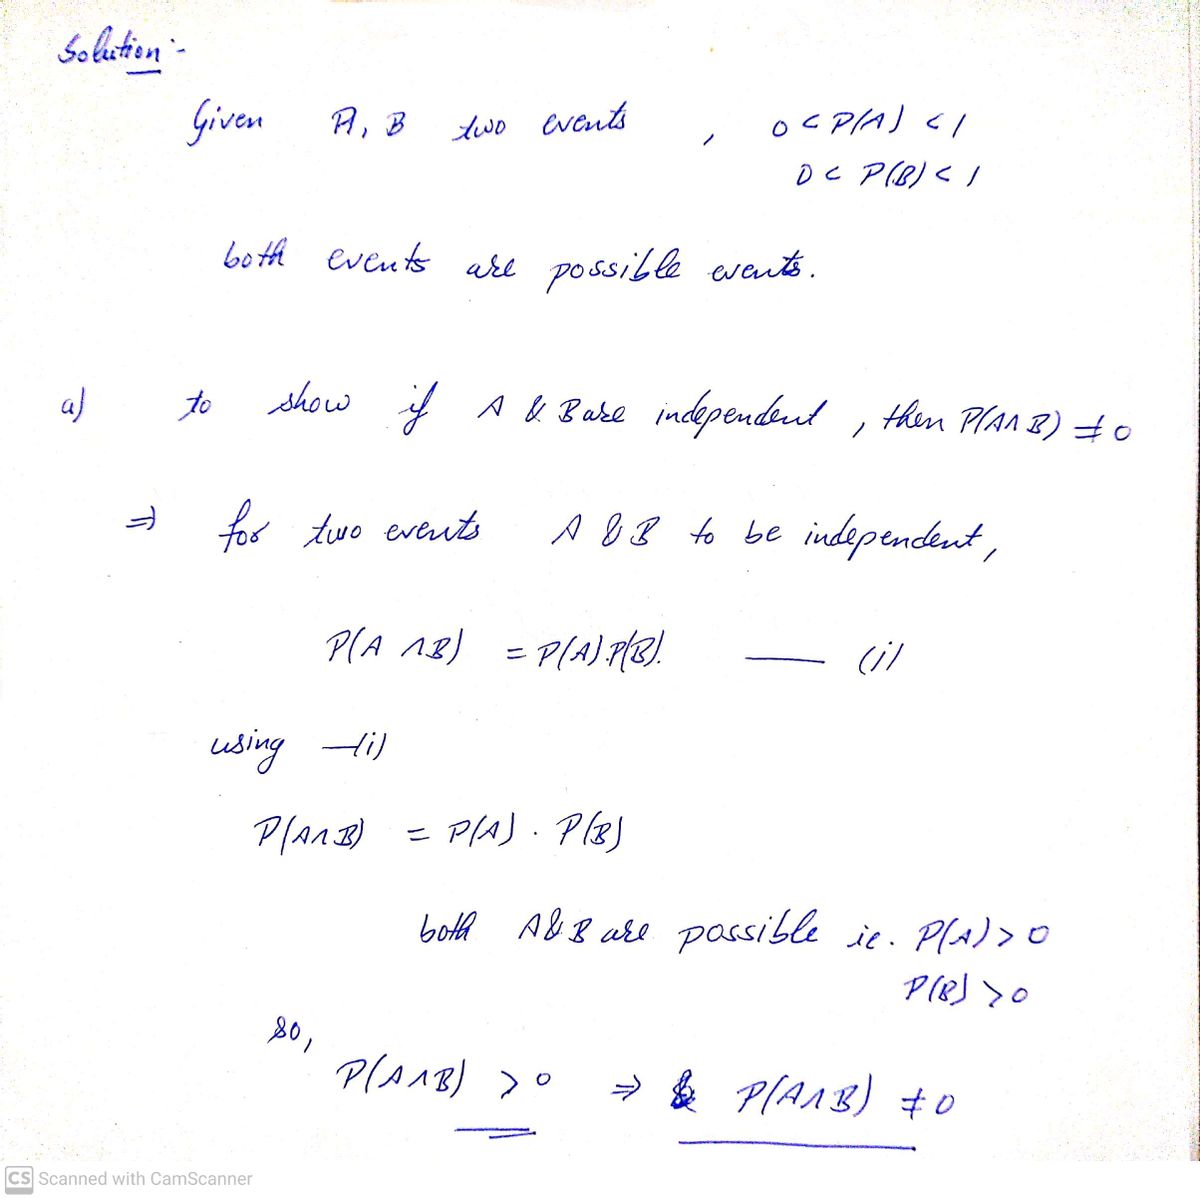 Solution :-
Given A, B two events , 0 < P(A) < 1
0 < P(B) < 1
both events are possible events.
a) to show if A & B are independent , then P(A∩B) ≠ 0
⇒ for two events A & B to be independent,
P(A ∩ B) = P(A).P(B). — (i)
using —(i)
P(A∩B) = P(A) . P(B)
both A & B are possible ie. P(A) > 0
P(B) > 0
so,
P(A∩B) > 0 ⇒ P(A∩B) ≠ 0
CS Scanned with CamScanner